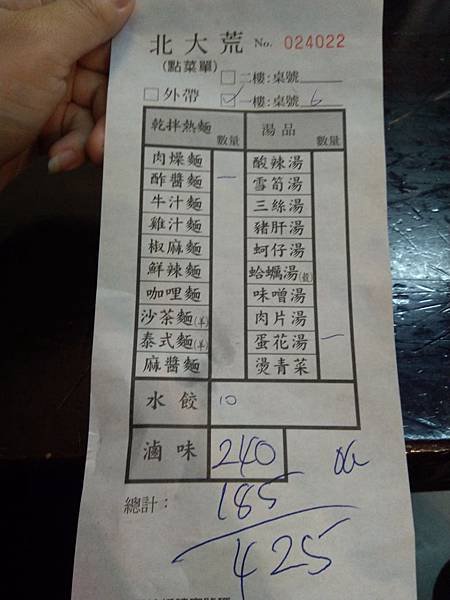 北大荒 No. 024022
(點菜單) □二樓:桌號
□外帶 ☑一樓:桌號 6
乾拌熱麵 數量 湯品 數量
肉燥麵 酸辣湯
酢醬麵 一 雪筍湯
牛汁麵 三絲湯
雞汁麵 豬肝湯
椒麻麵 蚵仔湯
鮮辣麵 蛤蠣湯
咖哩麵 味噌湯
沙茶麵(羊) 肉片湯
泰式麵(羊) 蛋花湯 一
麻醬麵 燙青菜
水餃 10
滷味 240
總計： 185
425